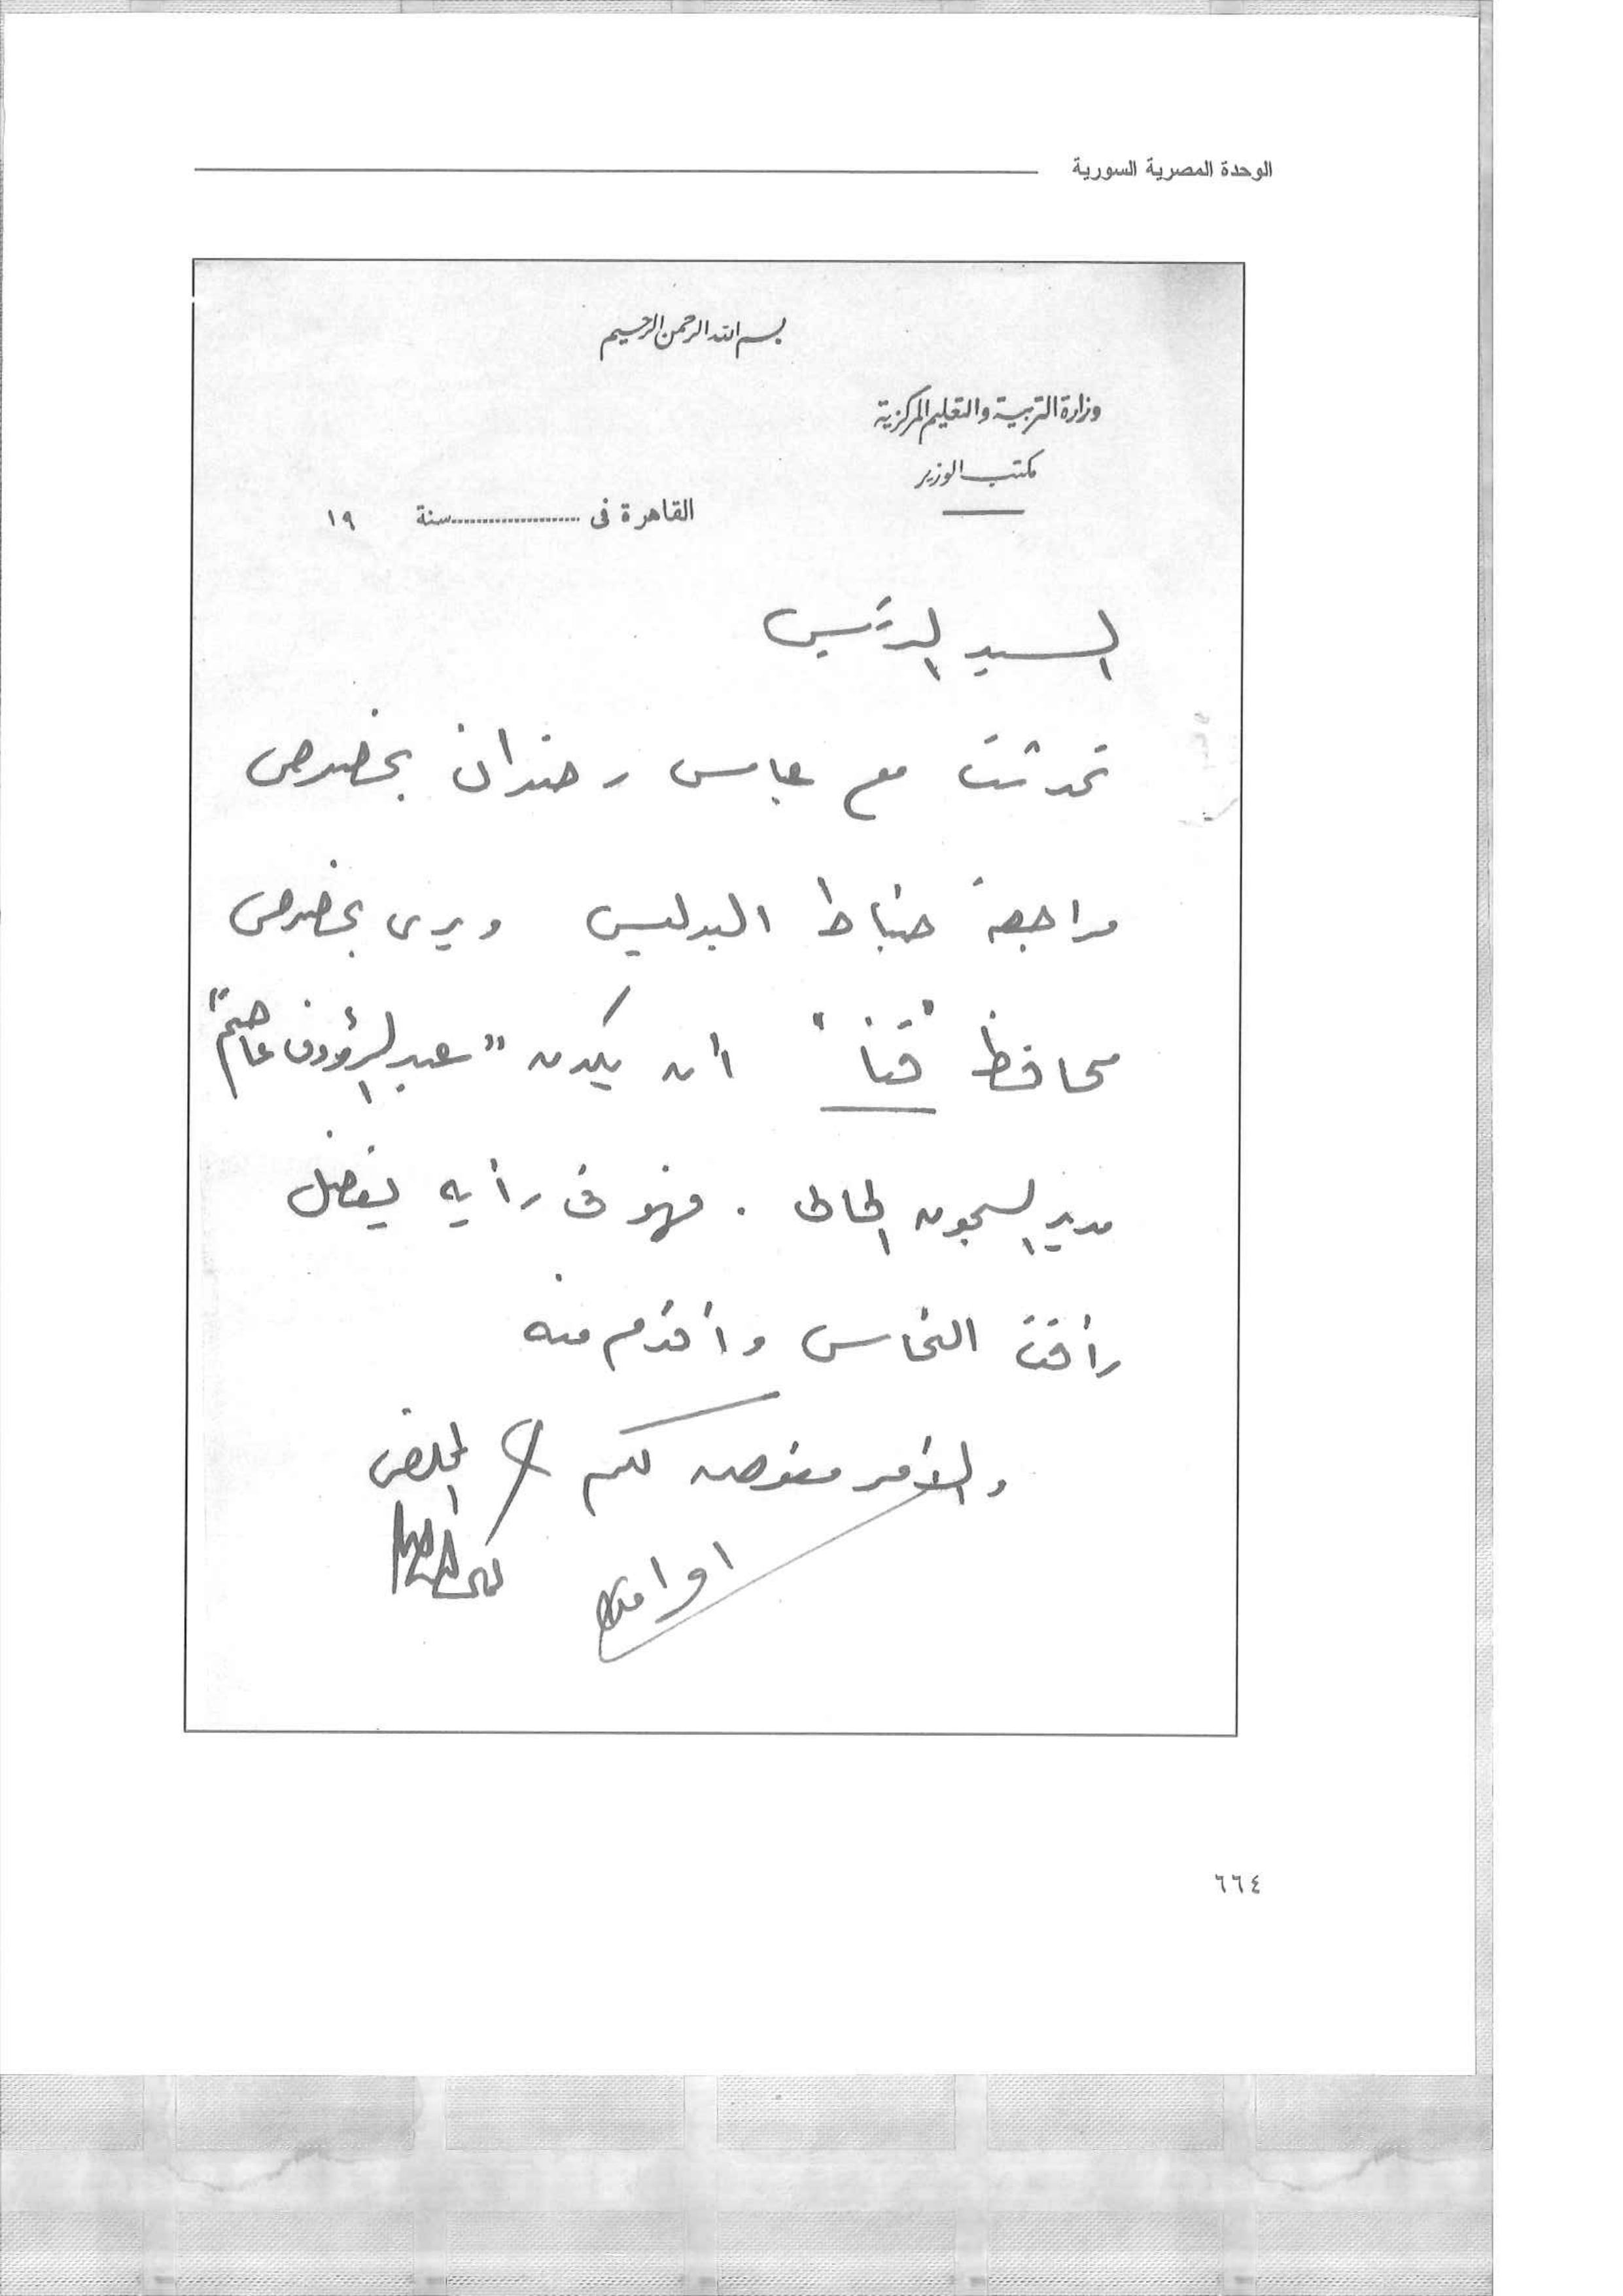 الوحدة المصرية السورية
بسم الله الرحمن الرحيم
وزارة التربية والتعليم المركزية
مكتب الوزير
القاهرة فى ..................... سنة ١٩
السيد الرئيس
تحدثت مع عباس رضوان بخصوص
مراجعة ضباط البوليس ويرى بخصوص
محافظ "قنا" أن يكون "عبد الرؤوف عاصم"
مدير السجون الحالى . فهو فى رأيه يفضل
رأفت النحاس وأقدم منه
والأمر مفوض لكم المخلص